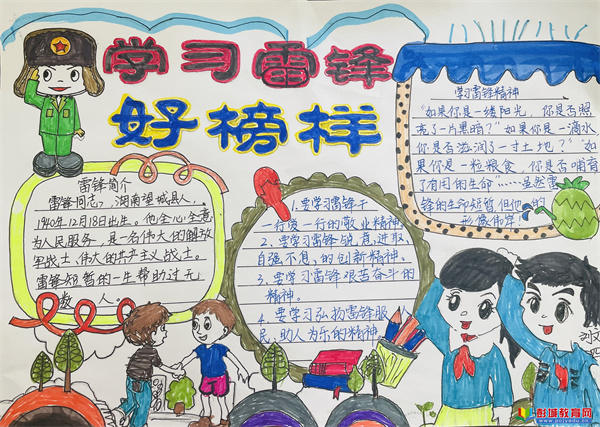 学习雷锋
好榜样
雷锋简介
雷锋同志,湖南望城县人,
1940年12月18日出生。他全心全意
为人民服务,是一名伟大的解放
军战士,伟大的共产主义战士。
雷锋短暂的一生帮助过无
数人。
1.要学习雷锋干
一行爱一行的敬业精神
2.要学习雷锋锐意进取
自强不息的创新精神。
3.要学习雷锋艰苦奋斗的
精神。
4.要学习弘扬雷锋服
民、助人为乐的精神
学习雷锋精神
"如果你是一缕阳光,你是否照
亮了一片黑暗?""如果你是一滴水
你是否滋润了一寸土地?""如
果你是一粒粮食,你是否哺育
了有用的生命"……虽然雷
锋的生命短暂但他的
形象伟岸。
彭城教育网
www.pcjyedu.cn